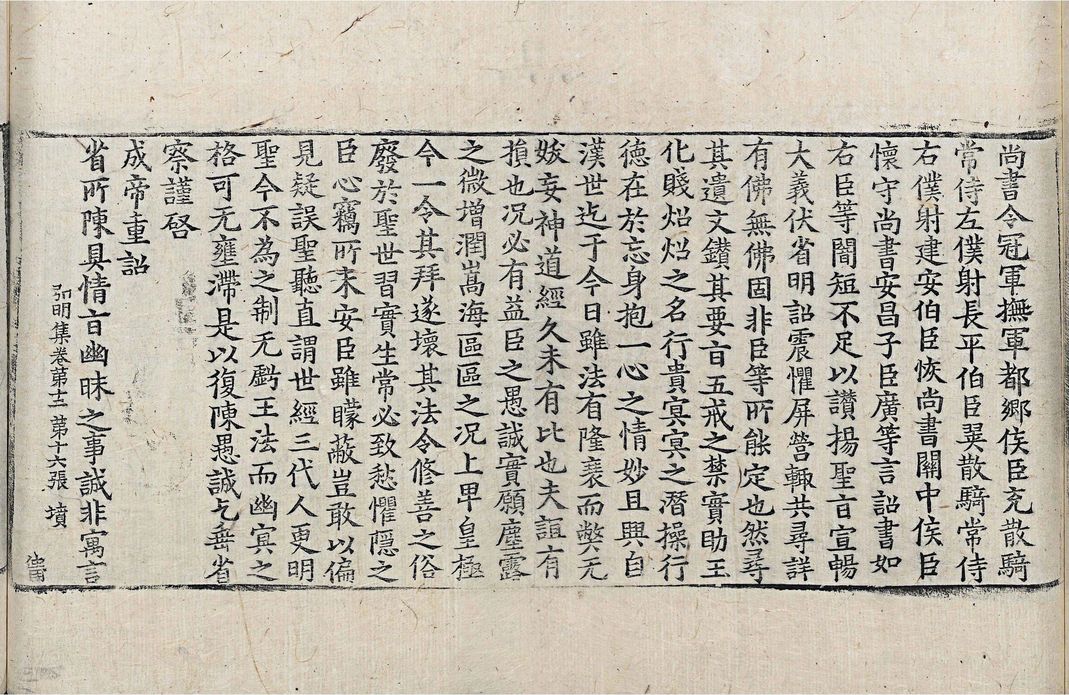 尚書令冠軍撫軍都鄉侯臣充散騎
常侍左僕射長平伯臣翼散騎常侍
右僕射建安伯臣恢尚書關中侯臣
懷守尚書安昌子臣廣等言詔書如
右臣等闇短不足以讚揚聖旨宣暢
大義伏省明詔震懼屏營輙共尋詳
有佛無佛固非臣等所能定也然尋
其遺文鑚其要旨五戒之禁實助王
化賤炤炤之名行貴冥冥之潛操行
德在於忘身抱一心之情妙且興自
漢世迄于今日雖法有隆衰而弊无
妖妄神道經久未有比也夫詛有
損也况必有益臣之愚誠實願塵露
之微增潤嵩海區區之况上甲皇極
今一令其拜遂壞其法令修善之俗
廢於聖世習實生常必致愁懼隱之
臣心竊所未安臣雖矇蔽豈敢以偏
見疑誤聖聽直謂世經三代人更明
聖今不為之制无虧王法而幽冥之
格可无壅滯是以復陳愚誠乞垂省
察謹啓
成帝重詔
省所陳具情旨幽昧之事誠非寓言
弘明集卷第十二 第十六張 墳